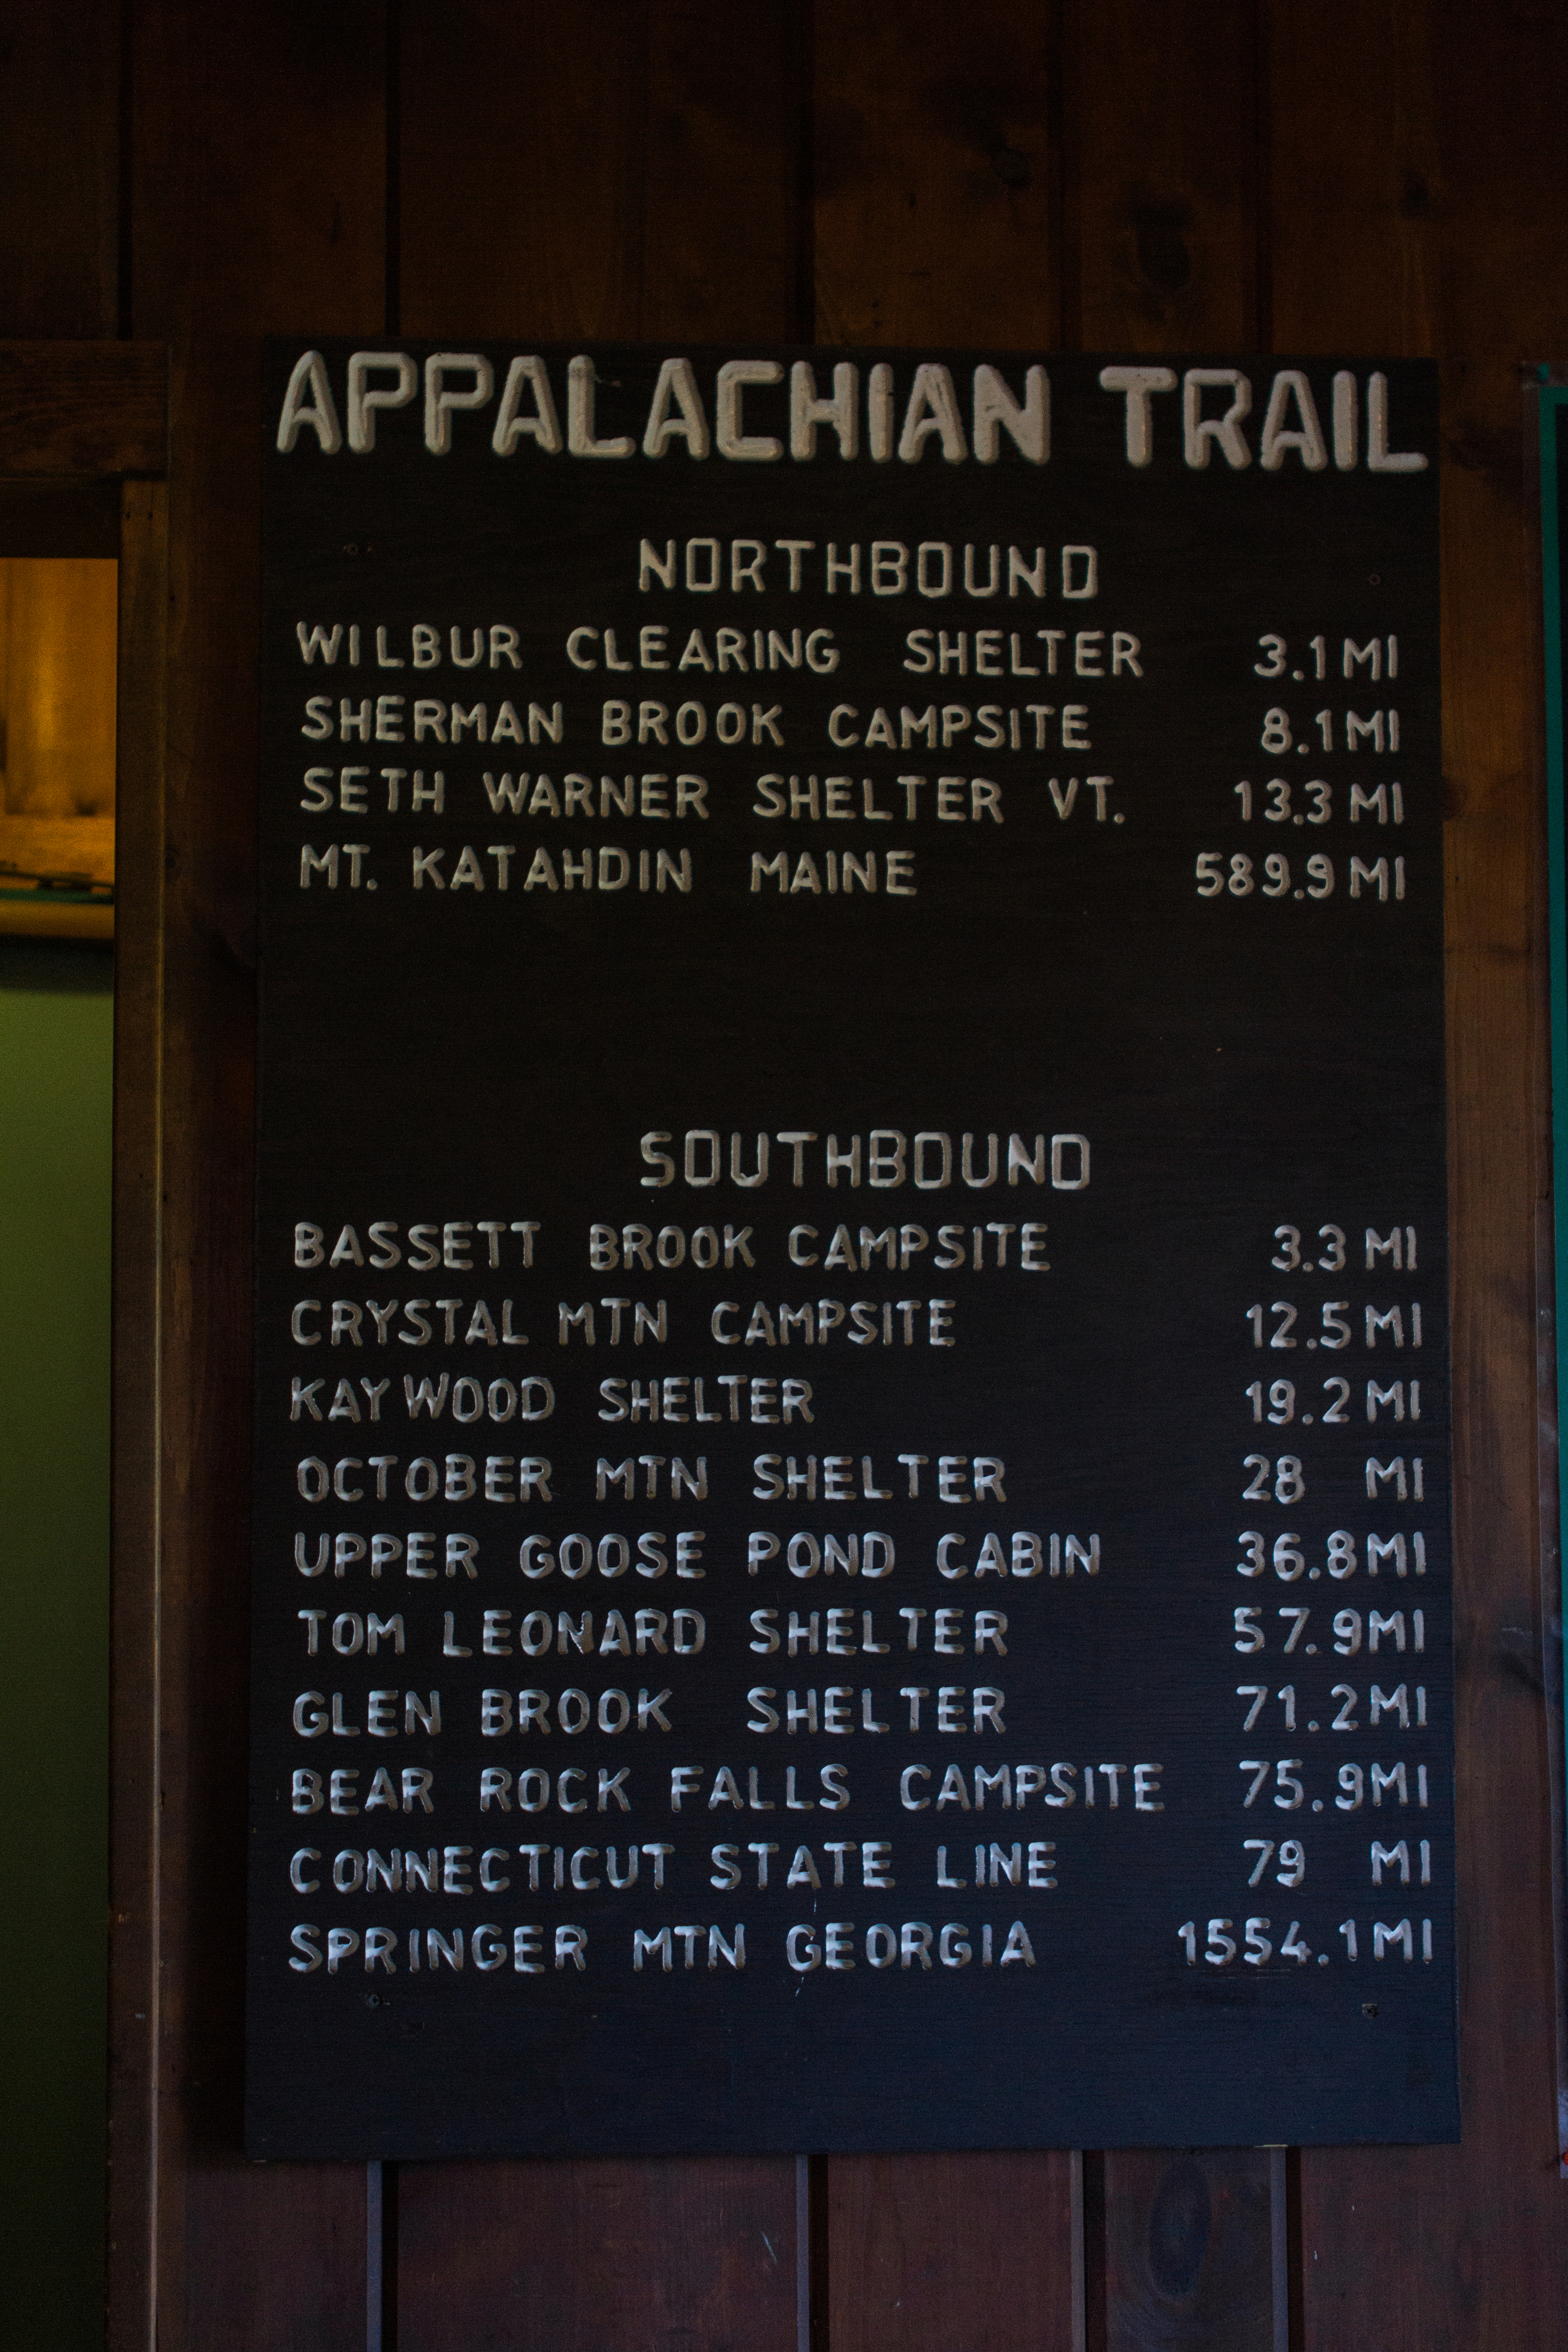 APPALACHIAN TRAIL
NORTHBOUND
WILBUR CLEARING SHELTER 3.1 MI
SHERMAN BROOK CAMPSITE 8.1 MI
SETH WARNER SHELTER VT. 13.3 MI
MT. KATAHDIN MAINE 589.9 MI
SOUTHBOUND
BASSETT BROOK CAMPSITE 3.3 MI
CRYSTAL MTN CAMPSITE 12.5 MI
KAY WOOD SHELTER 19.2 MI
OCTOBER MTN SHELTER 28 MI
UPPER GOOSE POND CABIN 36.8 MI
TOM LEONARD SHELTER 57.9 MI
GLEN BROOK SHELTER 71.2 MI
BEAR ROCK FALLS CAMPSITE 75.9 MI
CONNECTICUT STATE LINE 79 MI
SPRINGER MTN GEORGIA 1554.1 MI